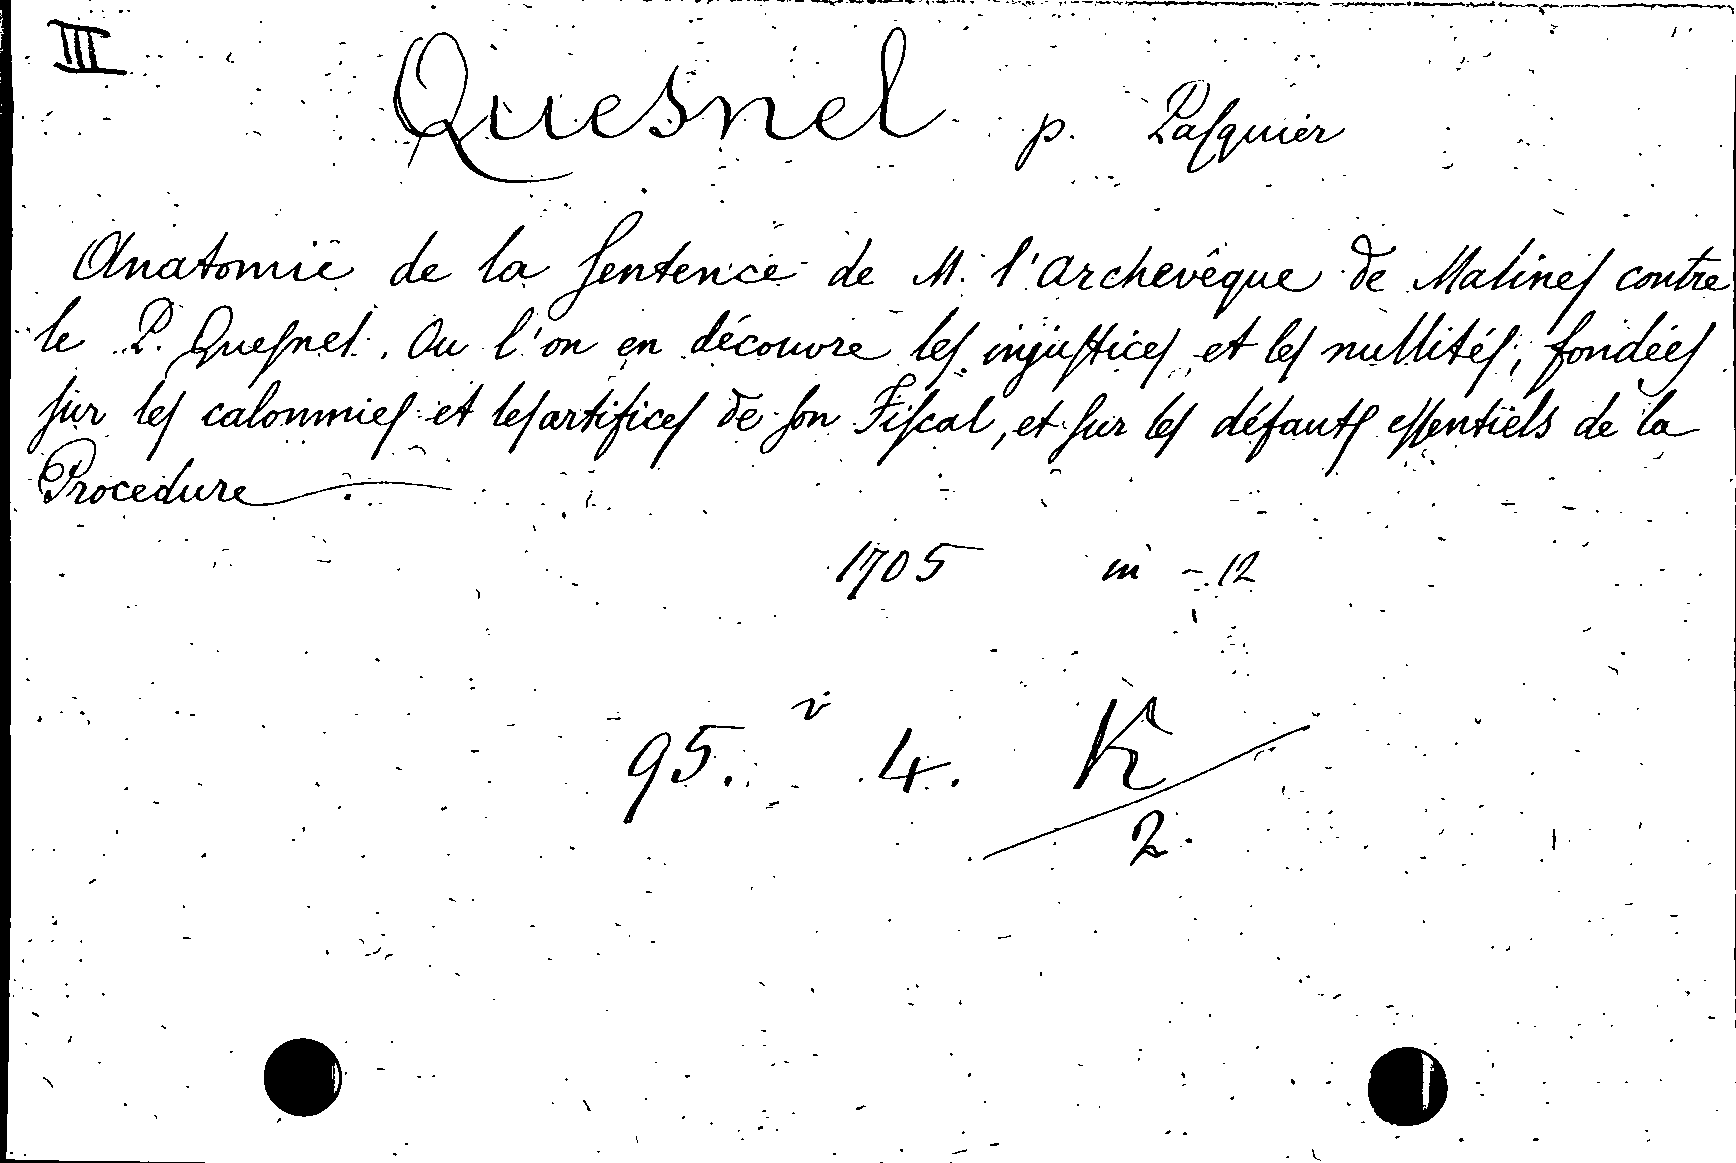 III
Quesnel p. Paſquier
Anatomie de la ſentence de M. l'archevêque de Malineſ contre
le P. Queſnel. Ou l'on en découvre leſ injuſticeſ et leſ nullitéſ, fondéeſ
ſur leſ calomnieſ et leſ artificeſ de ſon Fiſcal, et ſur leſ défautſ eſſentiels de la
Procedure
1705 in - 12
95. v 4. K
2.